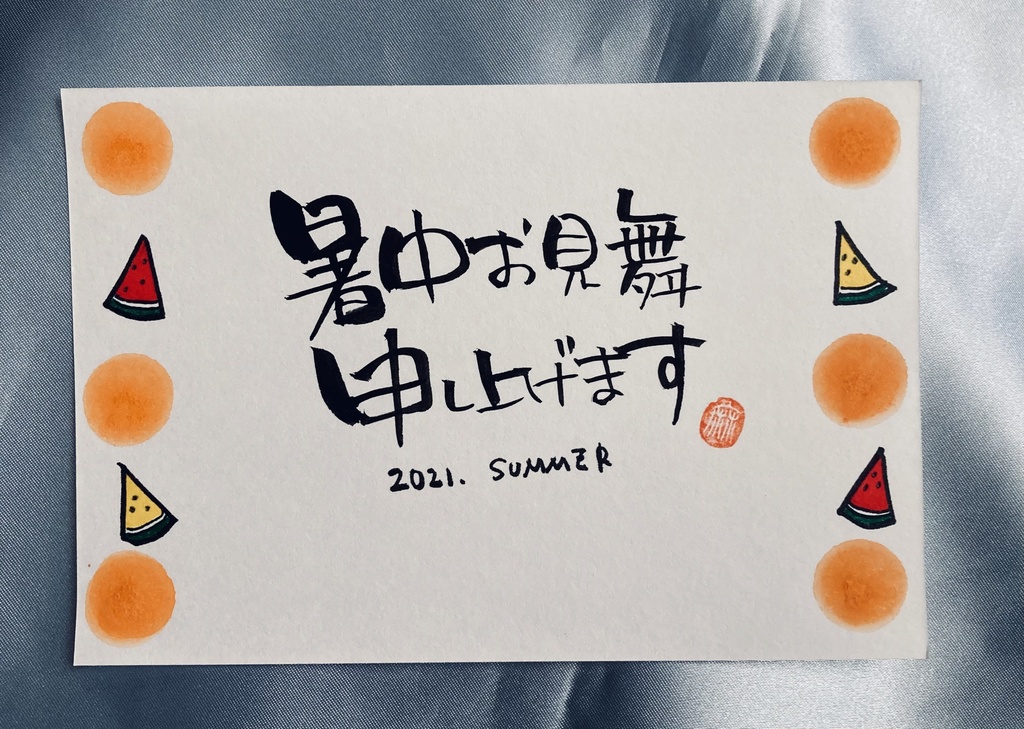 暑中お見舞
申し上げます
2021. SUMMER